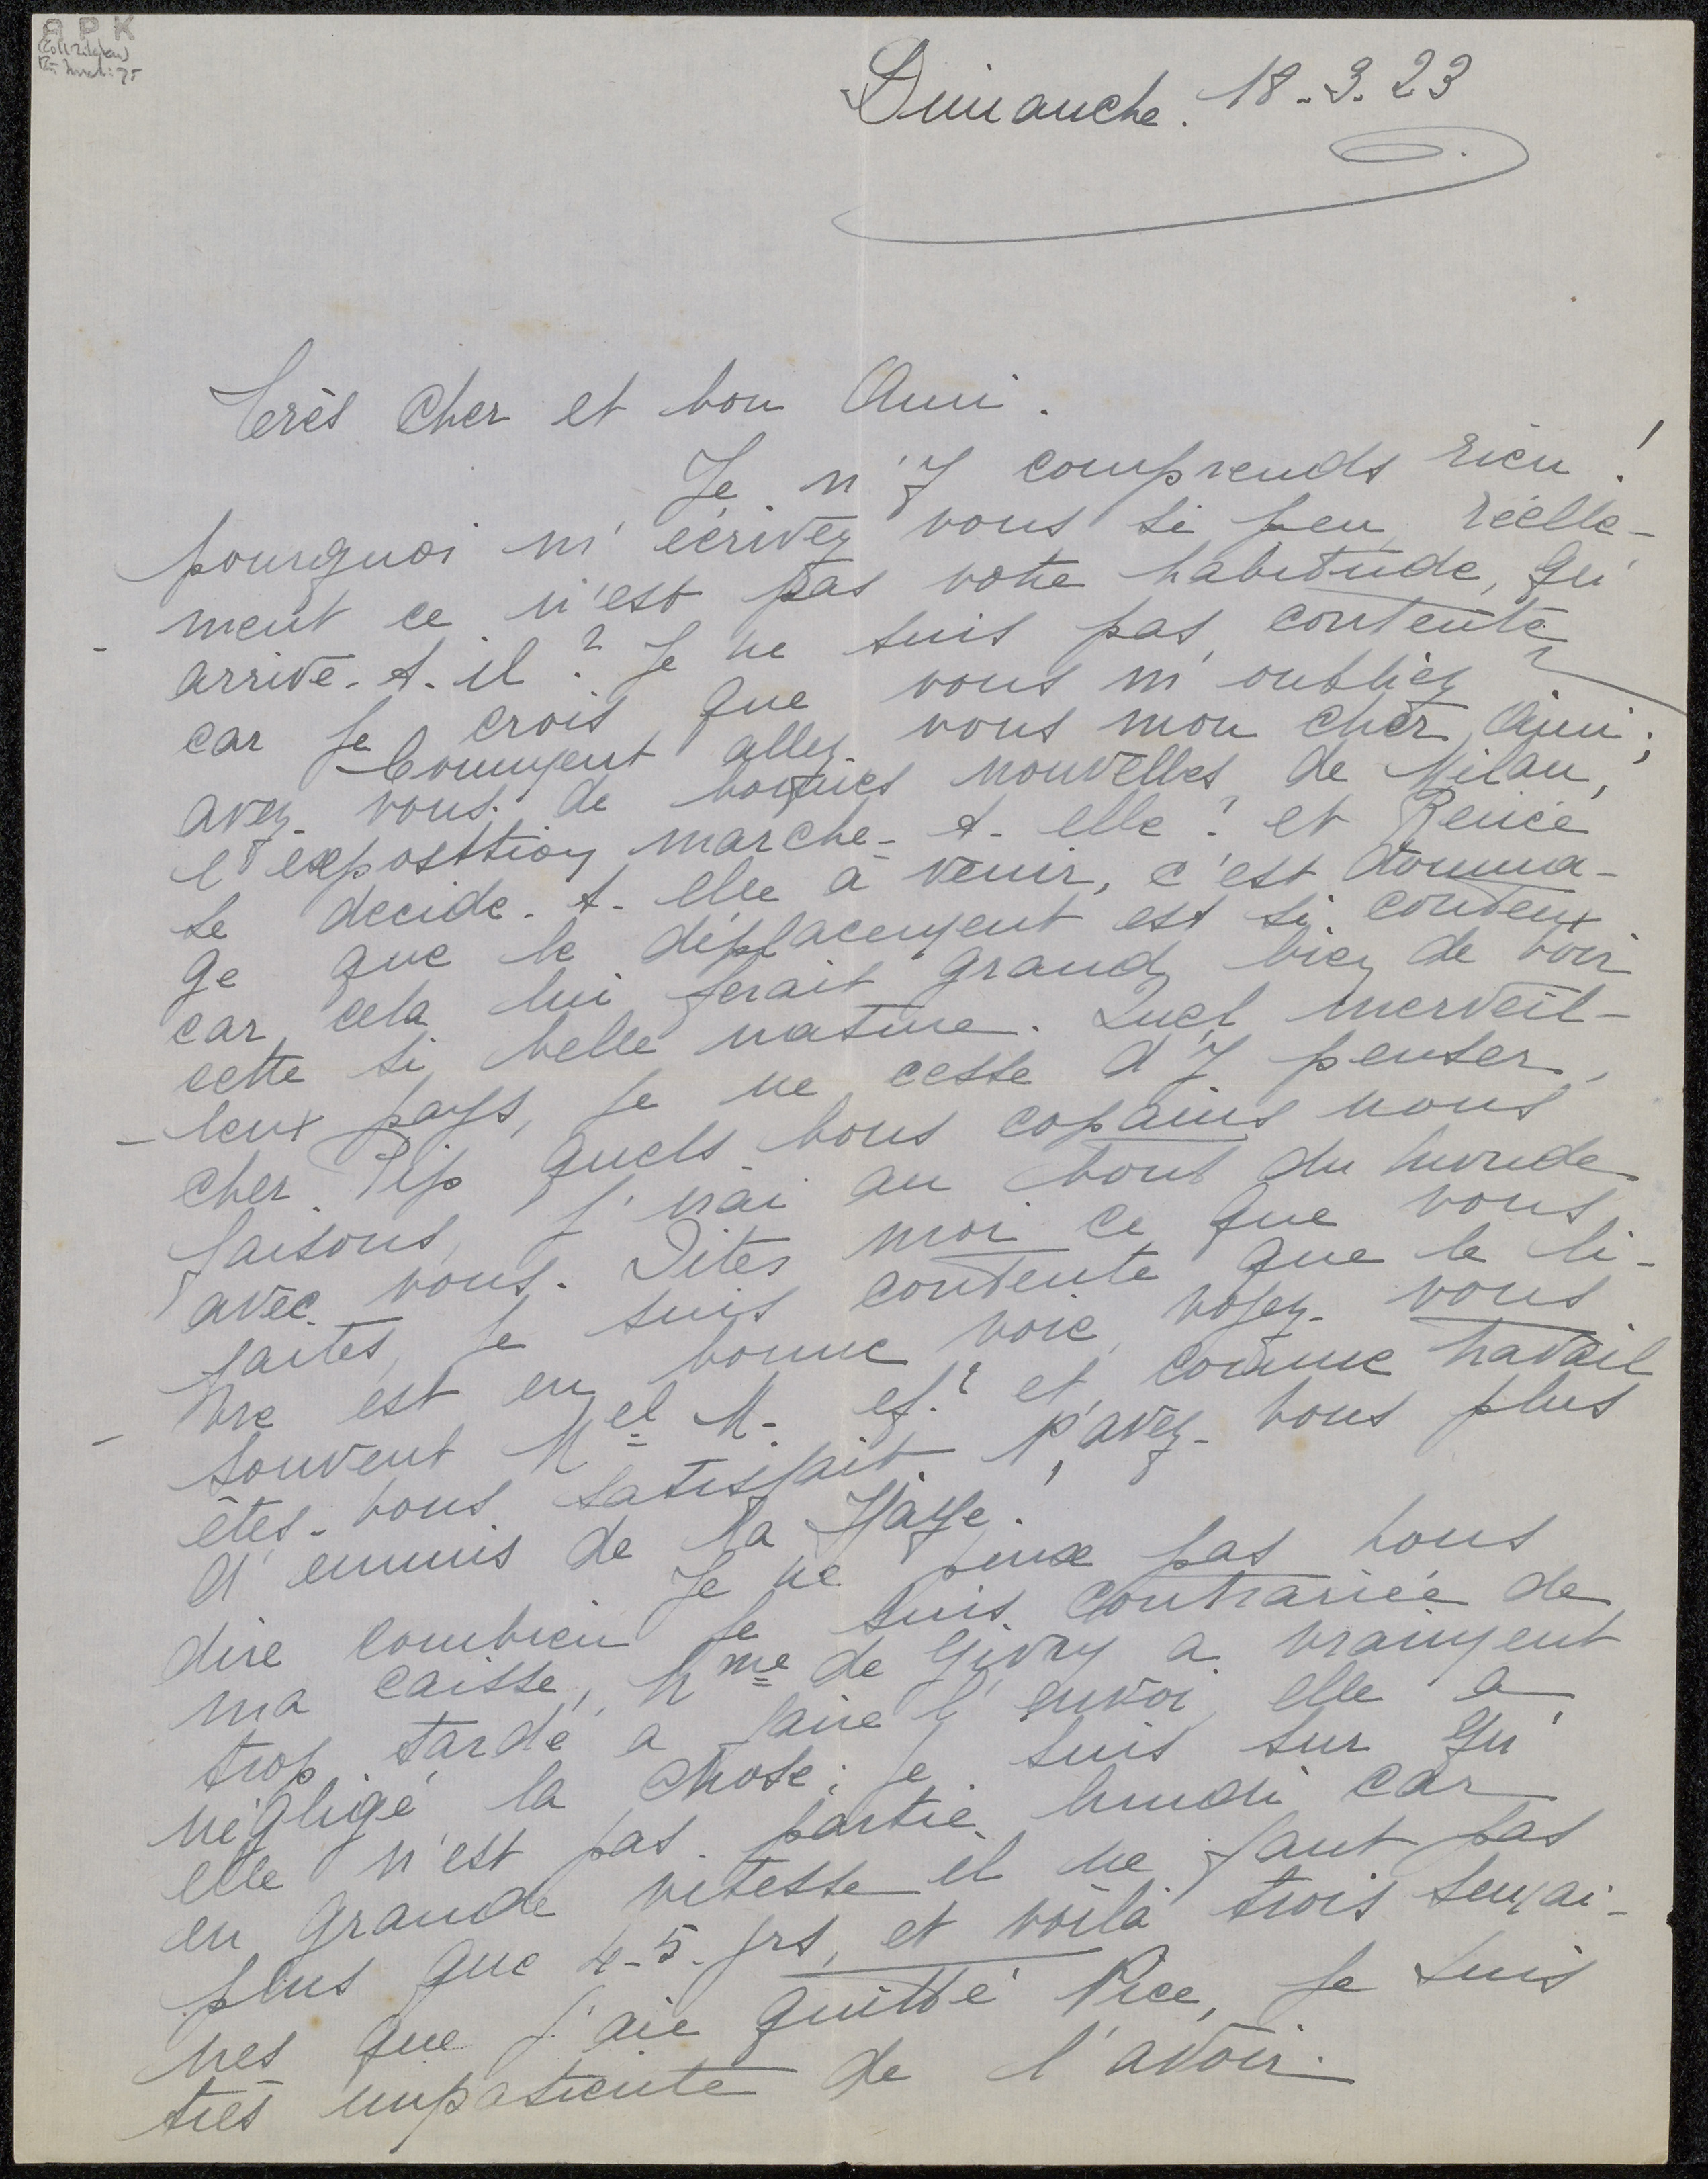 A P K
Dimanche. 18-3.23
Très cher et bon Ami.
Je n'y comprends rien!
pourquoi m'écrivez vous si peu, réelle-
ment ce n'est pas votre habitude, qu'
arrive-t-il? Je ne suis pas contente
car je crois que vous m'oubliez
Comment allez vous mon cher Ami;
avez-vous de bonnes nouvelles de Milan,
l'exposition marche-t-elle? et Renée
se decide-t-elle à venir, c'est domma-
ge que le déplacement est si couteux
car cela lui ferait grand bien de voir
cette si belle nature. Quel merveil-
leux pays, je ne cesse d'y penser,
cher Pip quels bons copains nous
faisons, j'irai au bout du monde
avec vous. Dites moi ce que vous
faites, je suis contente que le li-
vre est en bonne voie, voyez-vous
souvent Mel M. et et comme travail
êtes-vous satisfait. N'avez-vous plus
d'ennuis de la Haye!
Je ne peux pas vous
dire combien je suis contrariée de
ma caisse, Mme de Givry a vraiment
trop tardé a faire l'envoi, elle a
négligé la chose; je suis sur qu'
elle n'est pas partie lundi car
en grande vitesse il ne faut pas
plus que 4-5-jrs, et voilà trois semai-
nes que j'aie quitté Nice, je suis
très impatiente de l'avoir.